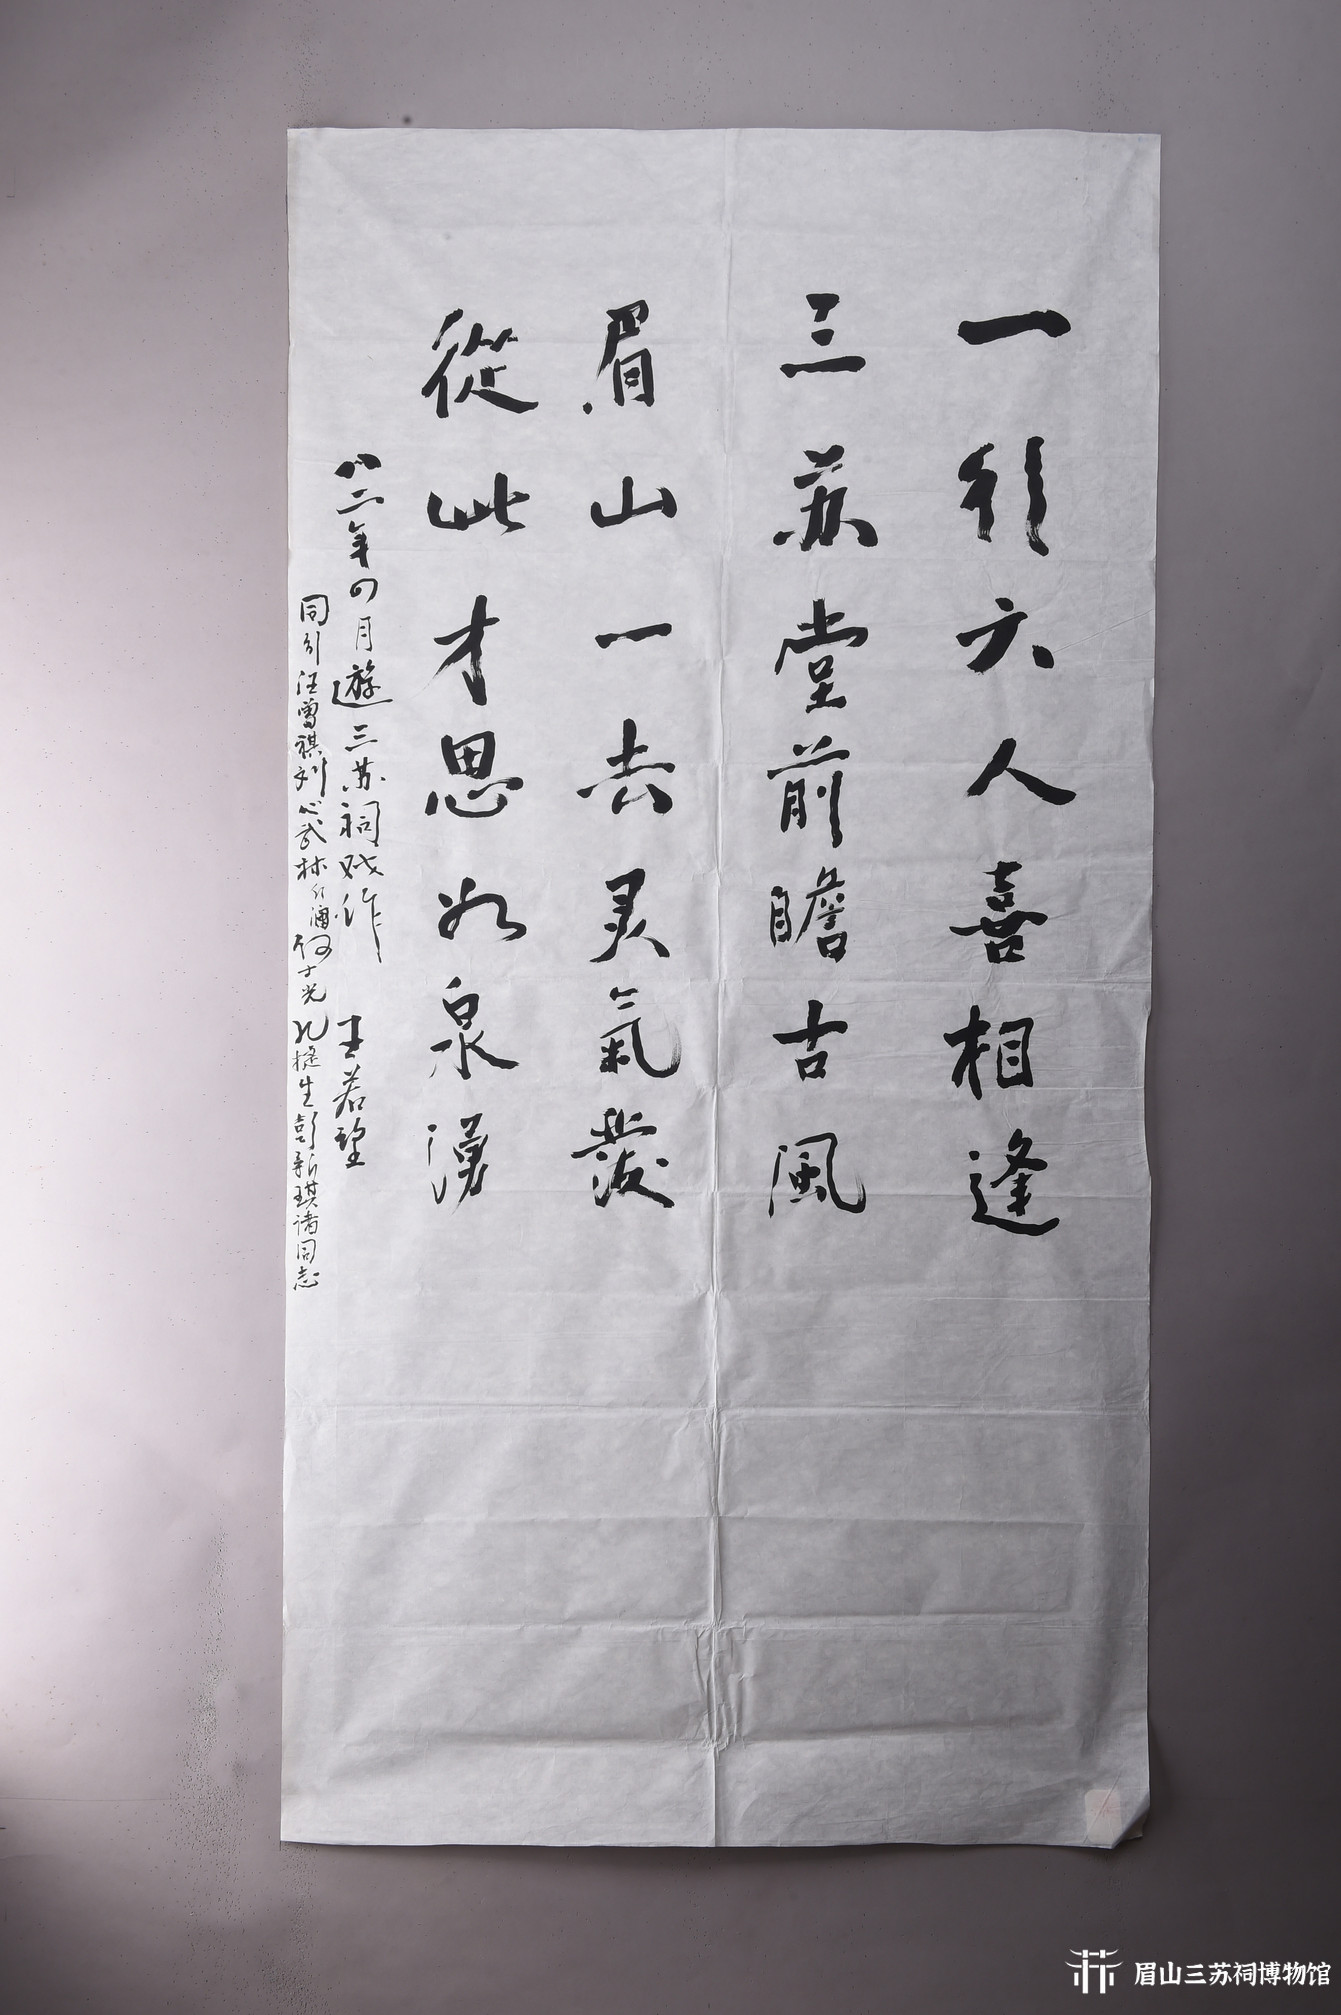 一行六人喜相逢
三苏堂前瞻古風
眉山一去灵氣發
從此才思如泉湧
八二年四月遊三苏祠戏作 王若望
同行汪曾祺刘心武林斤澜何士光孔捷生彭新琪诸同志
眉山三苏祠博物馆